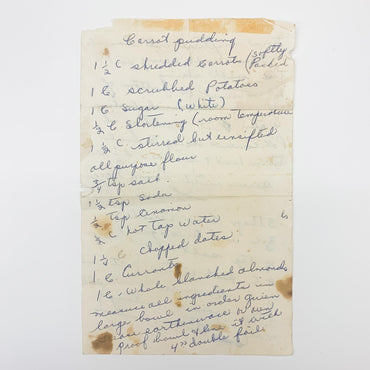 Carrot pudding
1 1/2 C shredded Carrots (softly Packed
1 C scrubbed Potatoes
1 C Sugar (White)
1/2 C Shortening (room temperature
1 1/2 C. stirred but unsifted
all purpose flour
3/4 tsp salt.
1 1/2 tsp Soda
1/2 tsp Cinamon
1/2 C hot Tap Water
1 1/4 C Chopped dates.
1 C Currants
1 C. Whole blanched almonds
measure all ingredients in
large bowl in order given
earthenware or oven
proof bowl & line it with
4" double foil